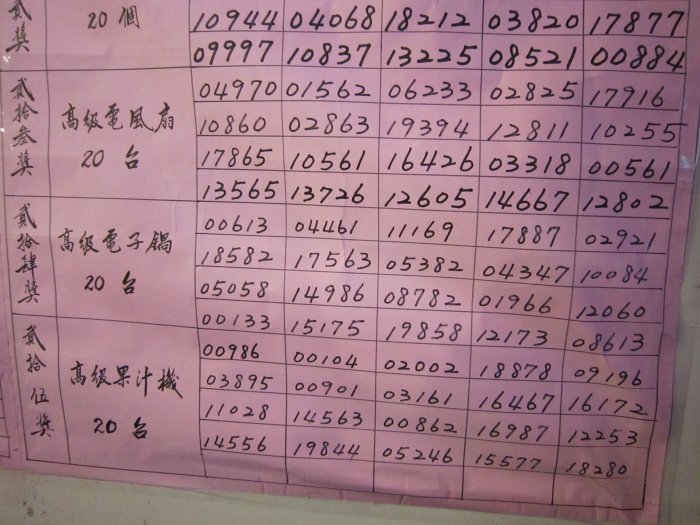 貳獎 20個 10944 04068 18212 03820 17877
09997 10837 13225 08521 00884
貳拾叁獎 高級電風扇 20台 04970 01562 06233 02825 17916
10860 02863 19394 12811 10255
17865 10561 16426 03318 00561
13565 13726 12605 14667 12802
貳拾肆獎 高級電子鍋 20台 00613 04461 11169 17887 02921
18582 17563 05382 04347 10084
05058 14986 08782 01966 12060
00133 15175 19858 12173 08613
貳拾伍獎 高級果汁機 20台 00986 00104 02002 18878 09196
03895 00901 03161 16467 16172
11028 14563 00862 16987 12253
14556 19844 05246 15577 18280